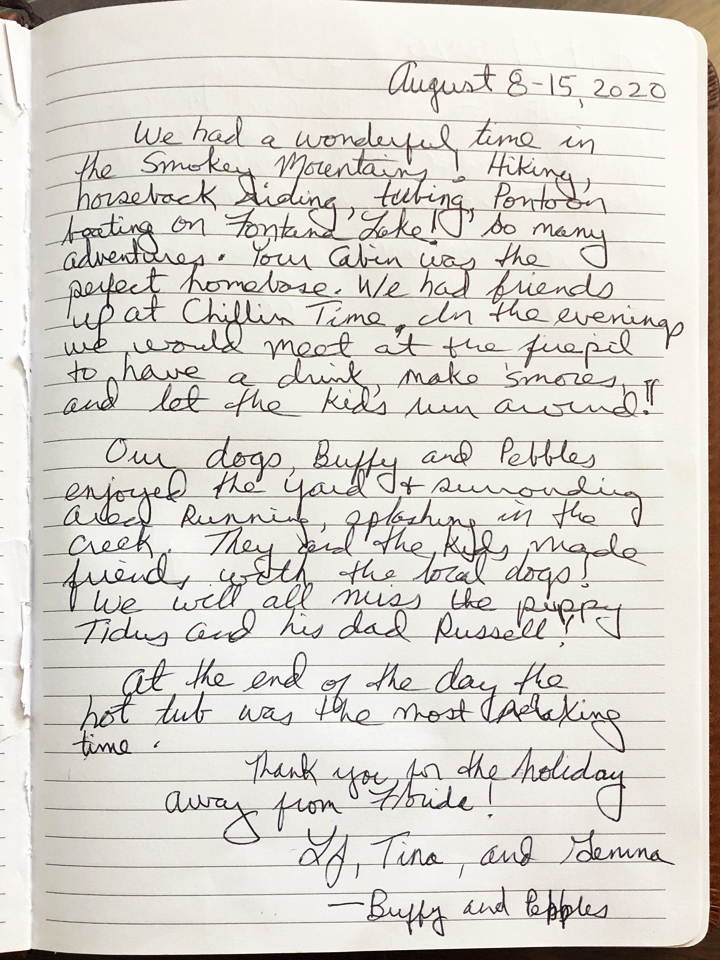 August 8-15, 2020
We had a wonderful time in
the Smokey Mountains! Hiking,
horseback riding, tubing, Pontoon
boating on Fontana Lake! So many
adventures. Your Cabin was the
perfect homebase. We had friends
up at Chillin Time. In the evenings
we would meet at the firepit
to have a drink, make smores,
and let the kids run around!!
Our dogs, Buffy and Pebbles
enjoyed the yard & surrounding
area Running, splashing in the
creek. They and the kids made
friends with the local dogs!
We will all miss the puppy
Titus and his dad Russell!
At the end of the day the
hot tub was the most relaxing
time.
Thank you for the holiday
away from Florida!
Tina, and
—Buffy and Pebbles